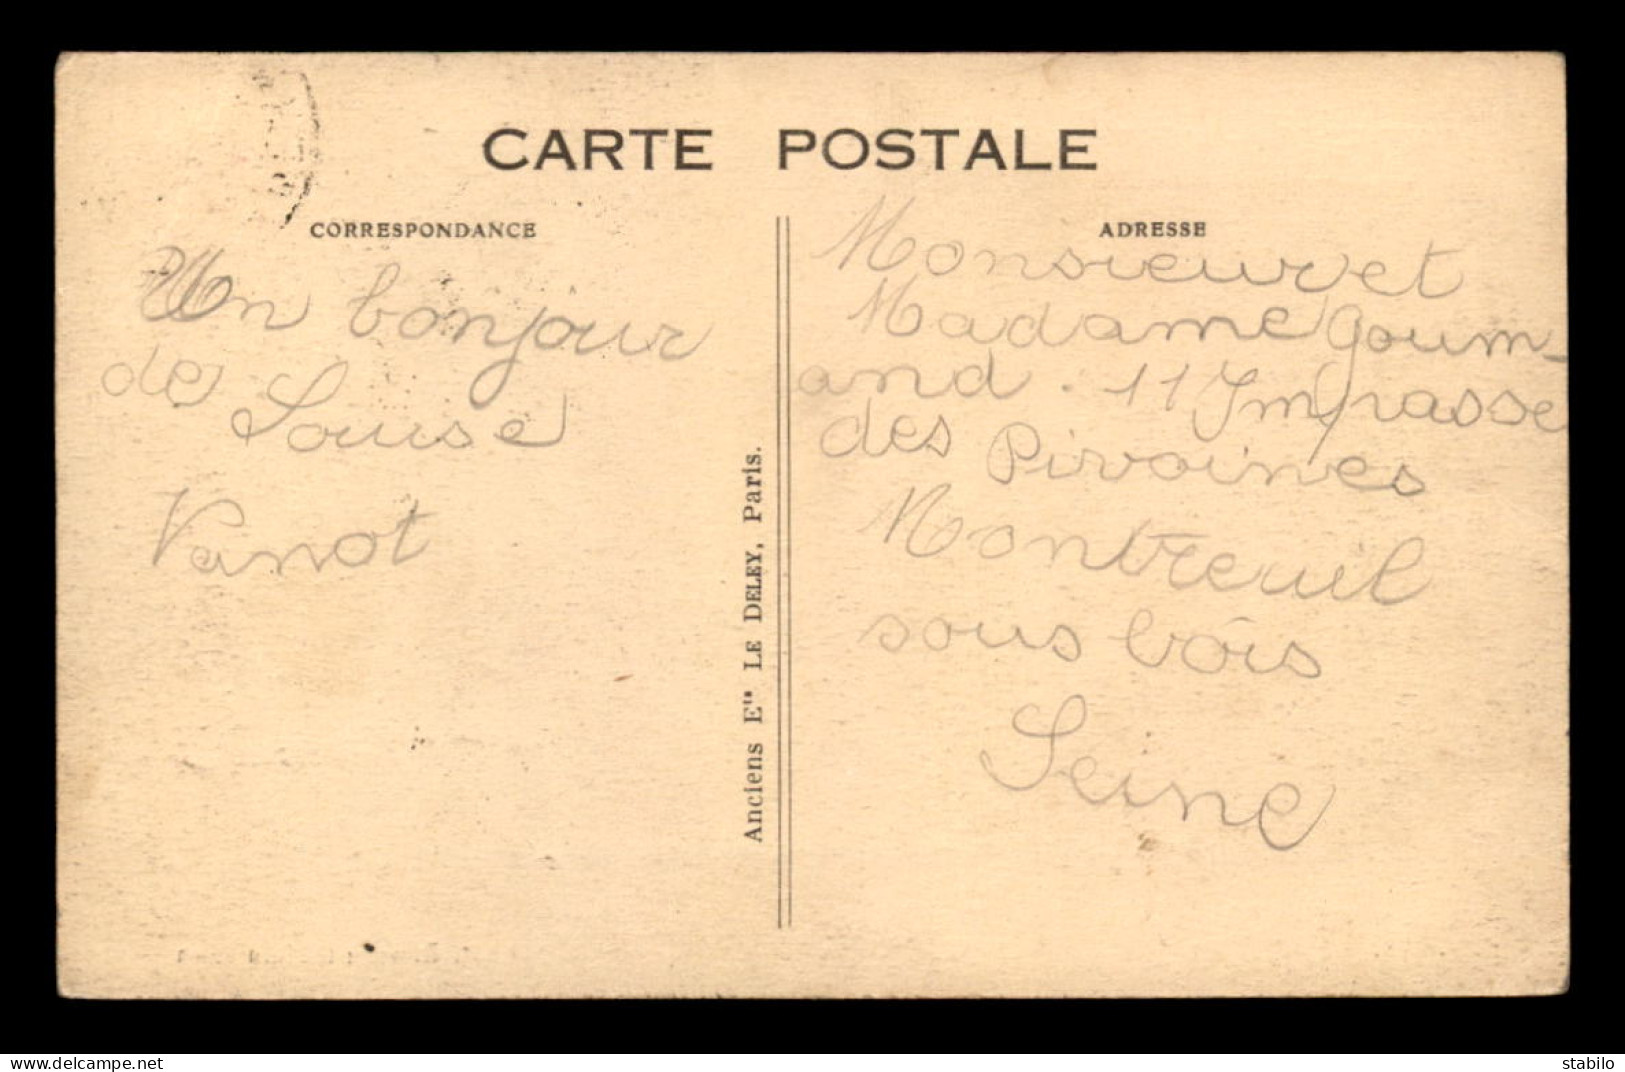 CARTE POSTALE
CORRESPONDANCE
Un bonjour
de Louise
Vanot
Anciens Ets LE DELEY, Paris.
ADRESSE
Monsieur et
Madame Goum-
and. 11 Impasse
des Pivoines
Montreuil
sous bois
Seine
delcampe.net
stabilo